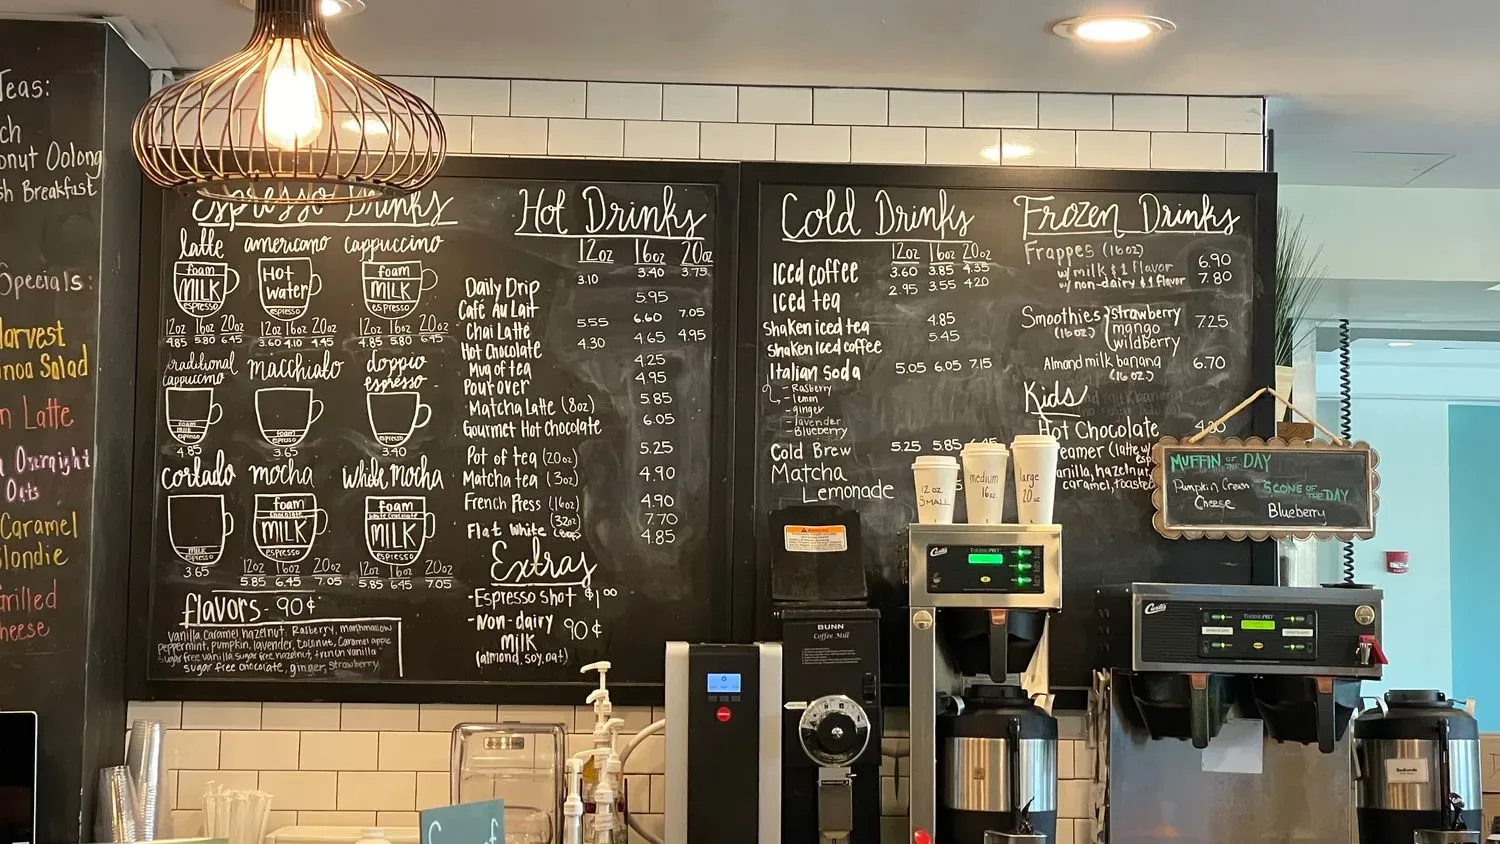 Teas:
Oolong
Breakfast
Specials:
Harvest
Salad
Latte
Overnight
Oats
Caramel
Blondie
Grilled
Cheese
Espresso Drinks
latte americano cappuccino
foam
MILK
espresso
Hot
water
foam
MILK
espresso
12oz 16oz 20oz
4.85 5.80 6.45
12oz 16oz 20oz
3.60 4.10 4.45
12oz 16oz 20oz
4.85 5.80 6.45
traditional
cappuccino
macchiato
doppio
espresso
foam
milk
espresso
foam
espresso
espresso
4.85
3.65
3.40
cortado mocha white mocha
milk
espresso
foam
chocolate
MILK
espresso
foam
white chocolate
MILK
espresso
3.65
12oz 16oz 20oz
5.85 6.45 7.05
12oz 16oz 20oz
5.85 6.45 7.05
flavors - 90¢
vanilla, caramel, hazelnut, Rasberry, marshmallow
peppermint, pumpkin, lavender, coconut, caramel apple
sugar free vanilla, sugar free hazelnut, french vanilla
sugar free chocolate, ginger, strawberry
Hot Drinks
12oz 16oz 20oz
Daily Drip 3.10 3.40 3.75
Café Au Lait 5.95
Chai Latte 5.55 6.60 7.05
Hot Chocolate 4.30 4.65 4.95
Mug of tea 4.25
Pour over 4.95
Matcha Latte (8oz) 5.85
Gourmet Hot Chocolate 6.05
Pot of tea (20oz) 5.25
Matcha tea (3oz) 4.90
French Press (16oz) 4.90
(32oz) 7.70
Flat White (8oz) 4.85
Extras
-Espresso shot $1.00
-Non-dairy
milk 90¢
(almond, soy, oat)
Cold Drinks
12oz 16oz 20oz
Iced coffee 3.60 3.85 4.35
Iced tea 2.95 3.55 4.20
Shaken iced tea 4.85
Shaken Iced coffee 5.45
Italian soda 5.05 6.05 7.15
- Rasberry
- lemon
- ginger
- lavender
- Blueberry
Cold Brew 5.25 5.85 6.45
Matcha
Lemonade
Frozen Drinks
Frappes (16oz)
w/milk & 1 flavor 6.90
w/non-dairy & 1 flavor 7.80
Smoothies
(16oz)
strawberry
mango
wildberry
7.25
Almond milk banana 6.70
(16oz)
Kids
Hot Chocolate
vanilla, hazelnut
caramel, toasted
MUFFIN OF THE DAY
Pumpkin Cream
Cheese
SCONE OF THE DAY
Blueberry
12 oz
SMALL
medium
16oz
large
20oz
WARNING
BUNN
Coffee Mill
Curtis
THERMOPRO
Curtis
THERMOPRO